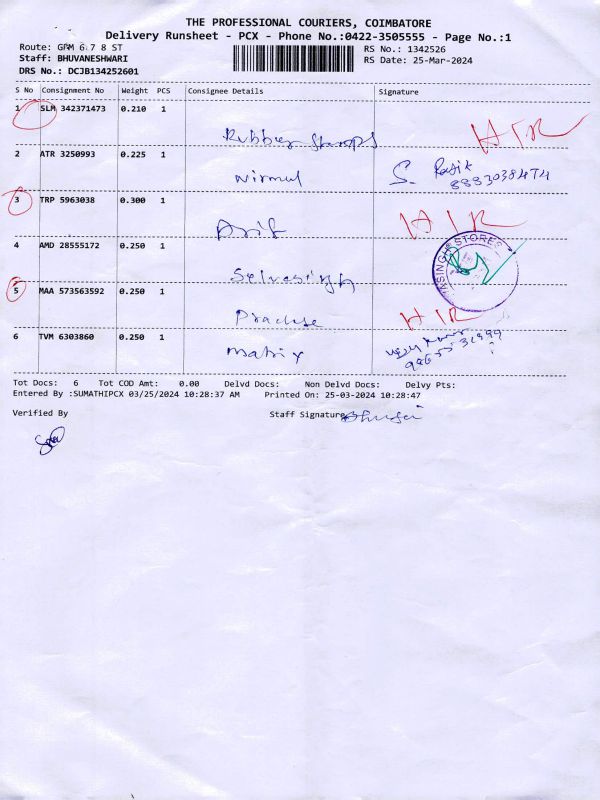 THE PROFESSIONAL COURIERS, COIMBATORE
Delivery Runsheet - PCX - Phone No.:0422-3505555 - Page No.:1
Route: GPM 6 7 8 ST
RS No.: 1342526
Staff: BHUVANESHWARI
RS Date: 25-Mar-2024
DRS No.: DCJB134252601
S No Consignment No Weight PCS Consignee Details Signature
1 SLM 342371473 0.210 1
Rubber Stamps HIR
2 ATR 3250993 0.225 1
Nirmul S. Rajik
3 TRP 5963038 0.300 1
Arif HIR
4 AMD 28555172 0.250 1
Selvasingh STORES
5 MAA 573563592 0.250 1
HIR
6 TVM 6303860 0.250 1
Matrix
Tot Docs: 6 Tot COD Amt: 0.00 Delvd Docs: Non Delvd Docs: Delvy Pts:
Entered By :SUMATHIPCX 03/25/2024 10:28:37 AM Printed On: 25-03-2024 10:28:47
Verified By Staff Signature